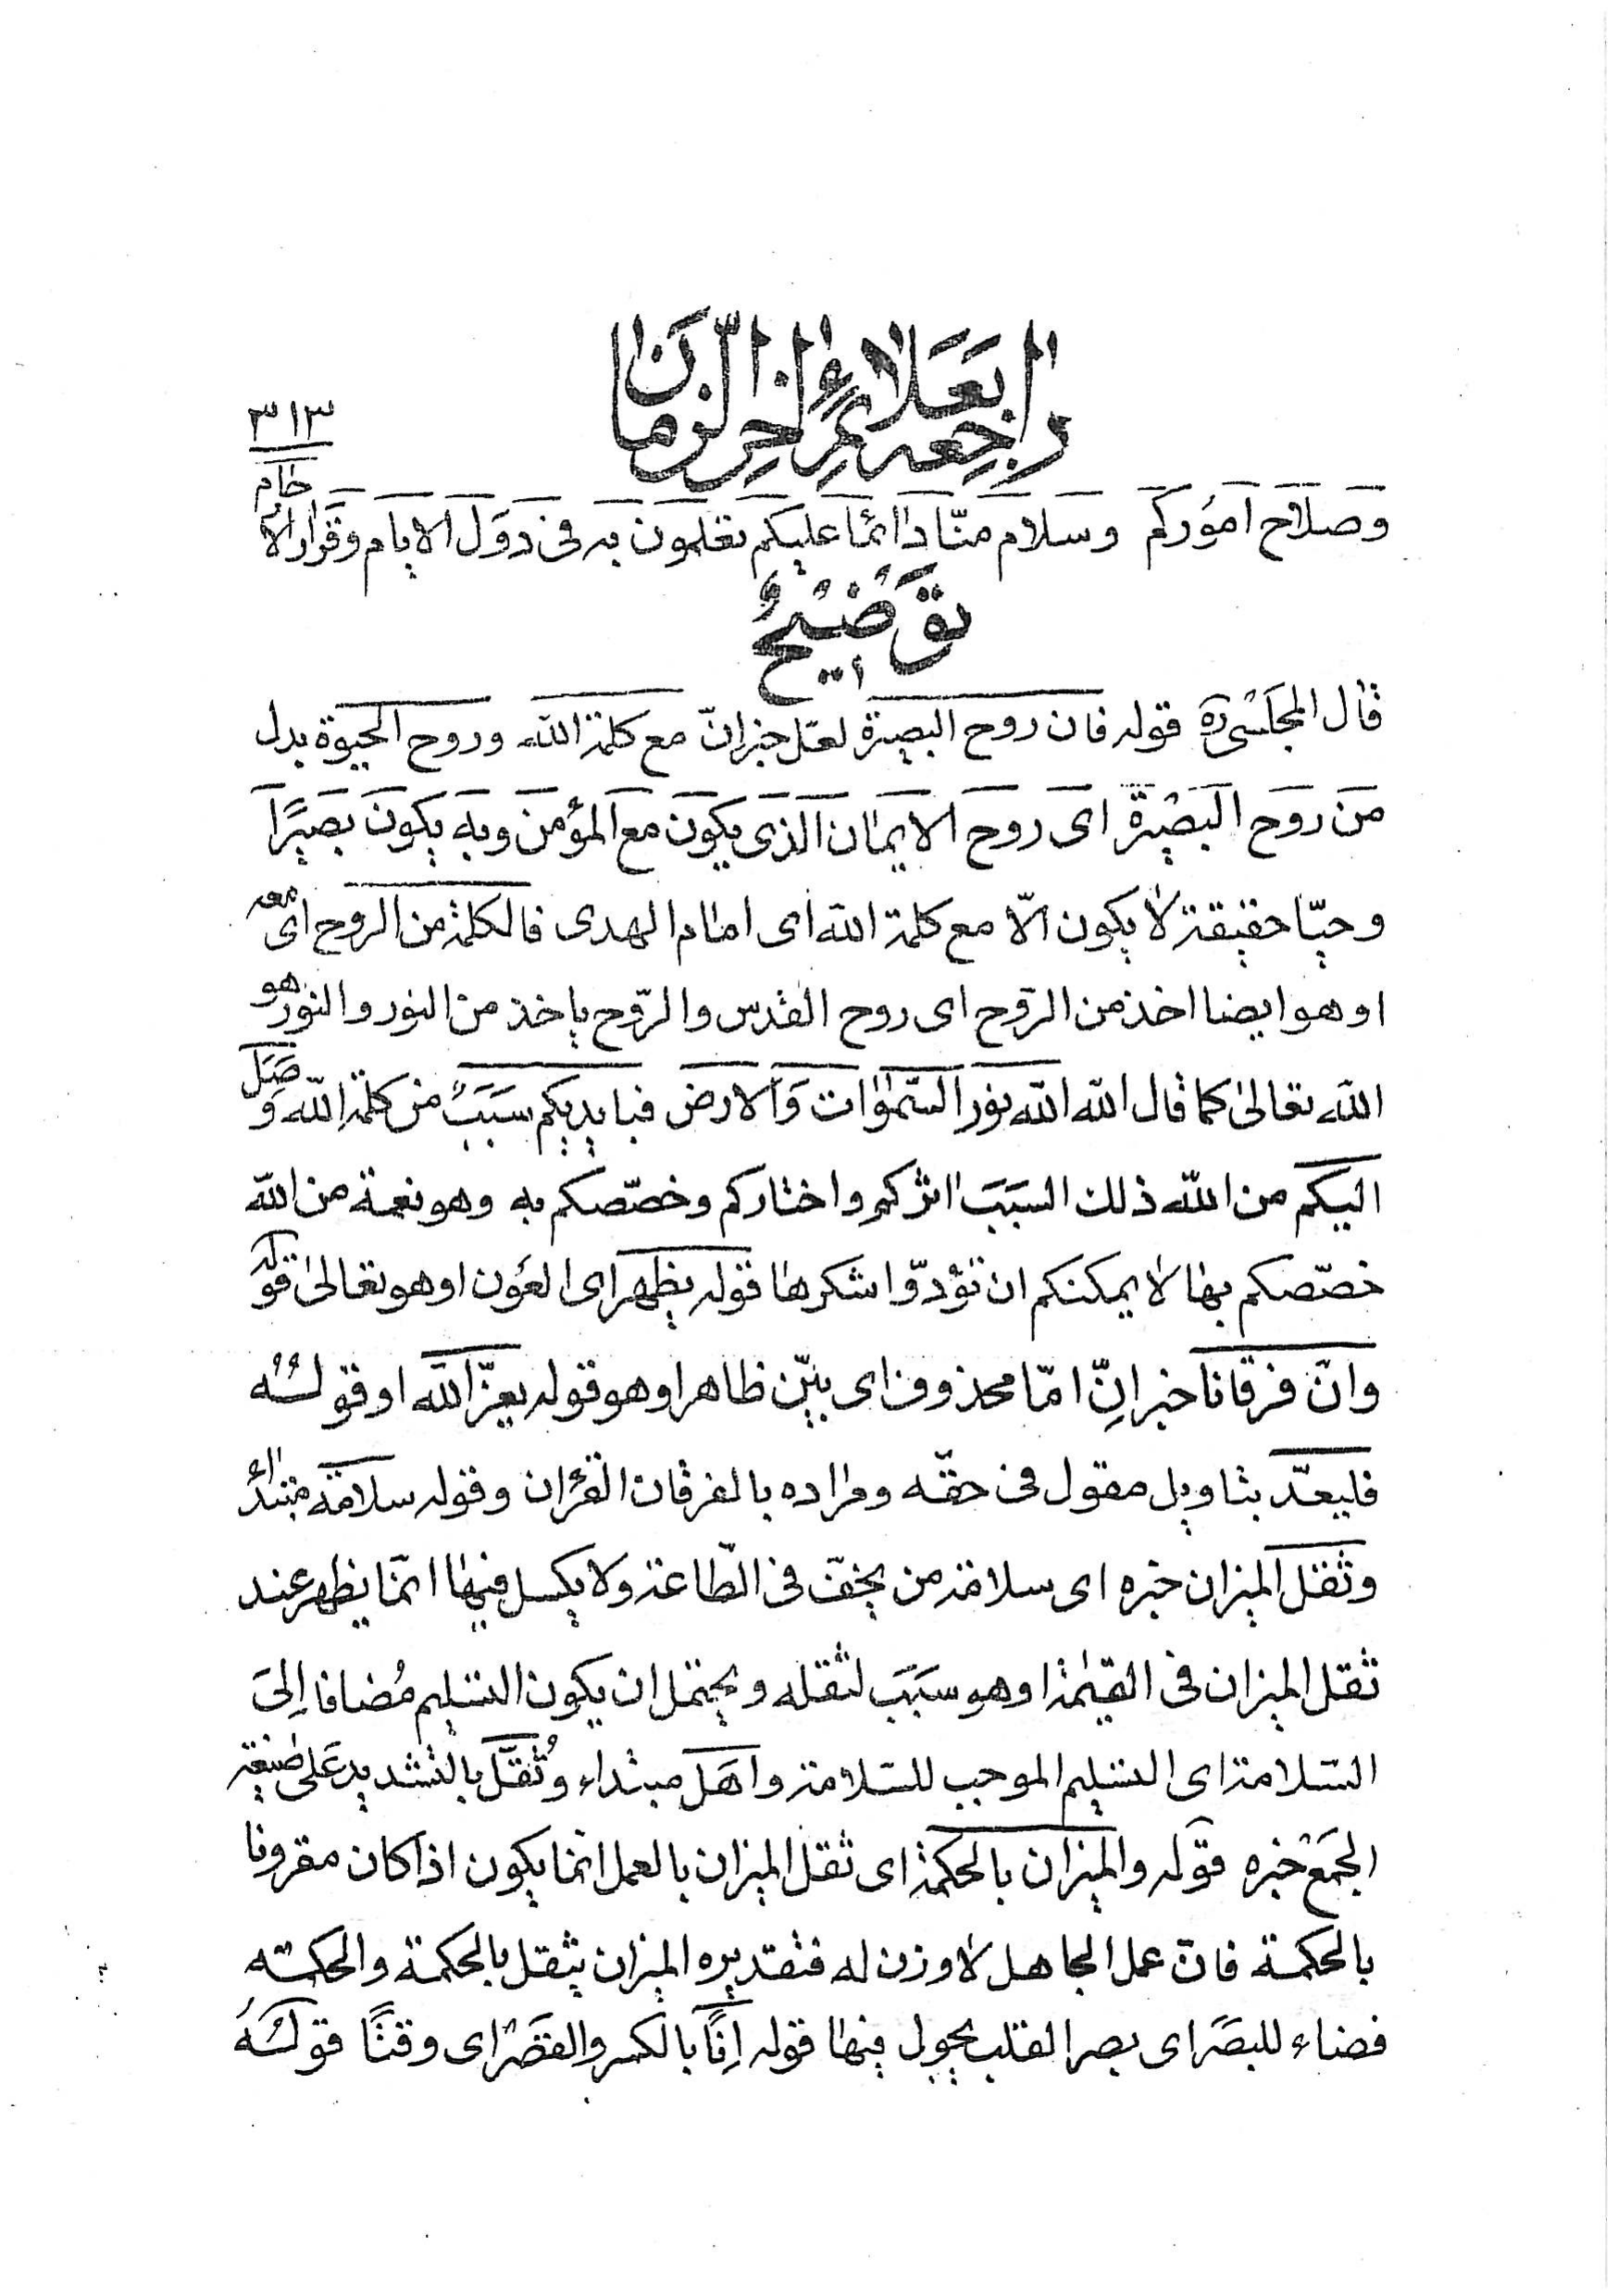 راجعه بعلائم اخر الزمان
۳۱۳
وصلاح اموركم وسلام منّا دائمًا عليكم تعلمون به فى دول الايام وقرار الارحام
توضيح
قال المجلسى ره قوله فان روح البصيرة لعلّ خبر انّ مع كلمة الله وروح الحيوة بدل
من روح البصيرة اى روح الايمان الذى يكون مع المؤمن وبه يكون بصيرًا
وحيّا حقيقة لا يكون الّا مع كلمة الله اى امام الهدى فالكلمة من الروح اى معه
او هو ايضا اخذ من الرّوح اى روح القدس والرّوح ياخذ من النور والنور هو
الله تعالىٰ كما قال الله الله نور السّمٰوٰات والارض فبايديكم سبب من كلمة الله وصل
اليكم من الله ذلك السبب اثركم واختاركم وخصّصكم به وهو نعمة من الله
خصّصكم بها لا يمكنكم ان تؤدّوا شكرها قوله يظهر اى العون او هو تعالىٰ قوله
وانّ فرقانا خبر انّ امّا محذوف اى بيّن ظاهر او هو قوله يعزّ الله او قوله
فليعدّ بتاويل مقول فى حقّه ومراده بالفرقان القرءان وقوله سلامة مبتداء
وثقل الميزان خبره اى سلامة من يخفّ فى الطّاعة ولا يكسل فيها انمّا يظهر عند
ثقل الميزان فى القيٰمة او هو سبب لثقله ويحتمل ان يكون التسليم مُضافا اِلى
السّلامة اى التسليم الموجب للسّلامة واهل مبتداء وثُقّل بالتشديد على صيغة
الجمع خبره قوله والميزان بالحكمة اى ثقل الميزان بالعمل انما يكون اذا كان مقرونا
بالحكمة فانّ عمل الجاهل لا وزن له فتقديره الميزان يثقل بالحكمة والحكمة
فضاء للبصر اى بصر القلب يجول فيها قوله اِنًا بالكسر والقصر اى وقتًا قوله